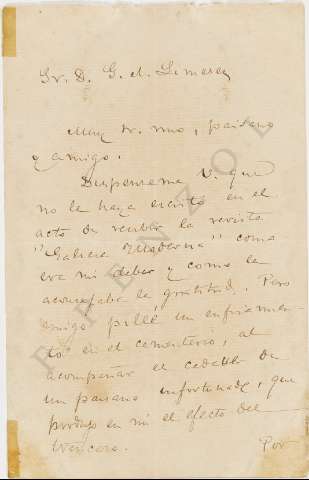 Sr. D. G. A.
Muy Sr. mio, paisano
y amigo.
Dispenseme V. que
no le haya escrito en el
acto de recibir la revista
"Galicia Moderna" como
era mi deber y como la
aconsejaba la gratitud. Pero
amigo pillé un enfriamien-
to en el cementerio, al
acompañar el cadáver de
un paisano infortunado, que
produjo en mi el efecto del
tercero.
Por
PENZOL